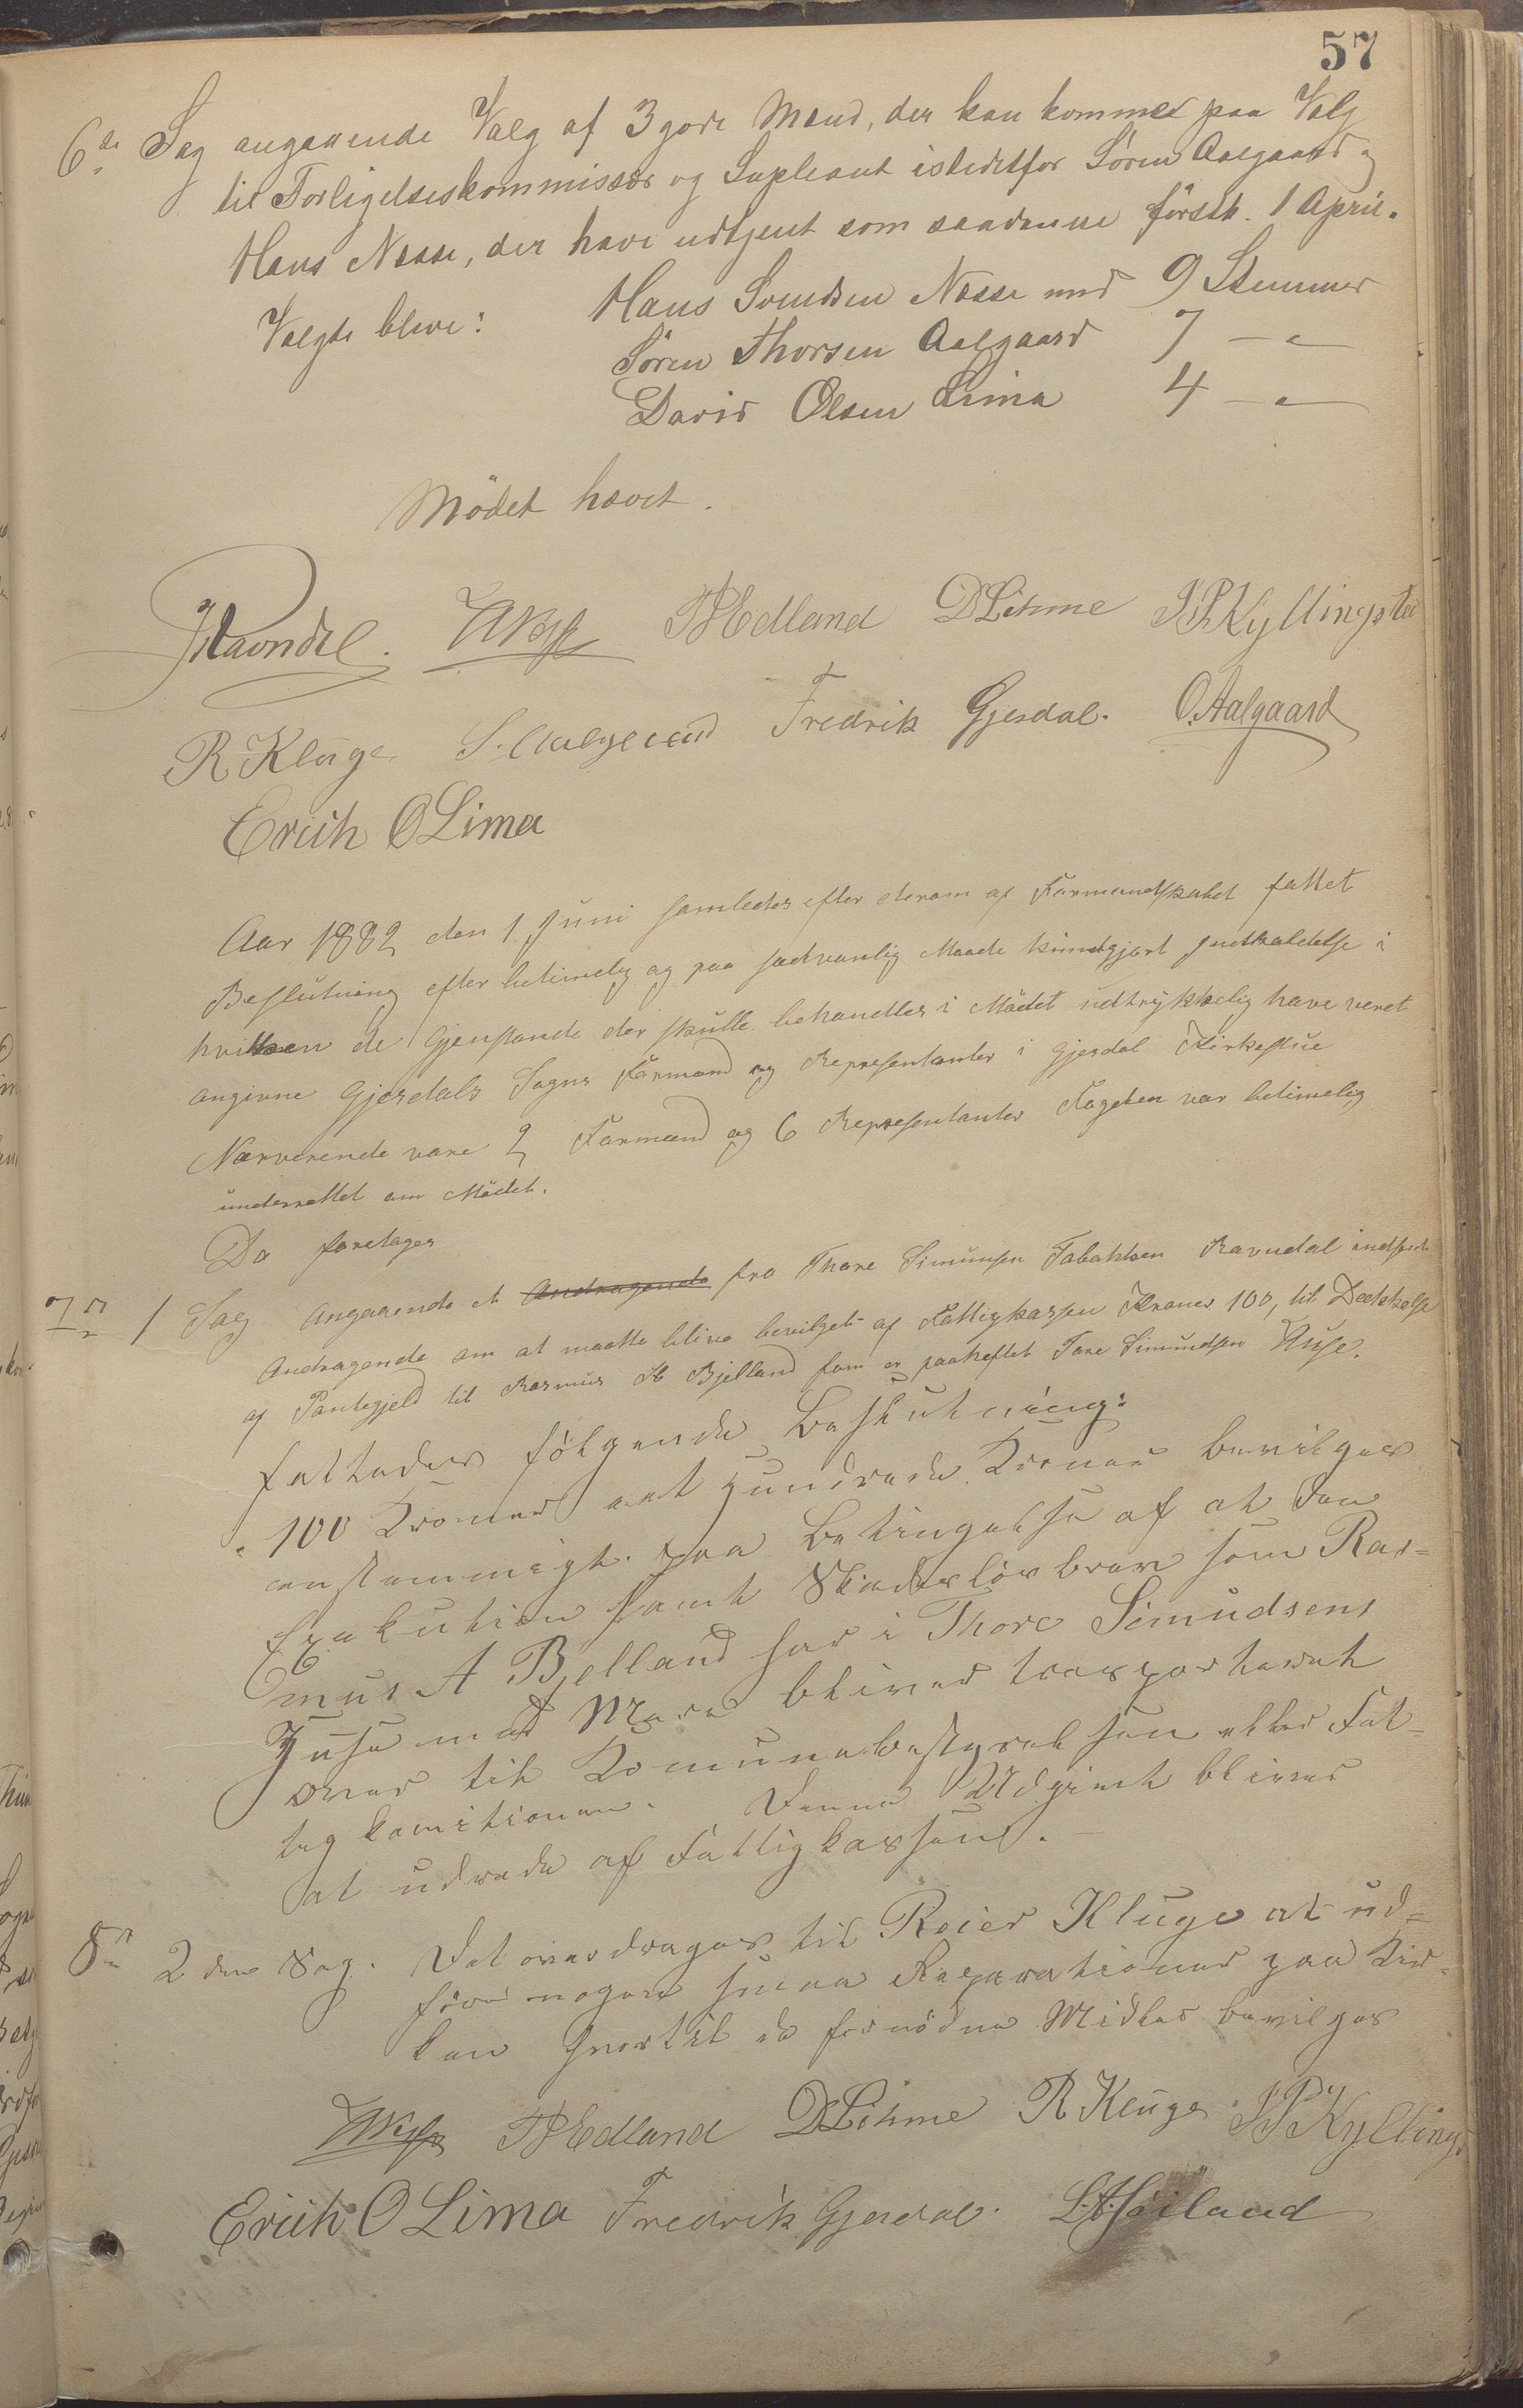 57
6te Sag angaaende Valg af 3 gode Mænd, der kan komme paa Valg
til Forligelseskommissær og Supleant istedetfor Sören Aalgaard og
Hans Næsse, der have udtjent som saadanne förstk. 1 April.
Valgte bleve: Hans Svendsen Næsse med 9 Stemmer
Sören Thorsen Aalgaard 7 — " —
David Olsen Lima 4 — " —
Mödet hævet.
Ravndal. TBEdland DLihme JPKyllingstad
R Kluge S. Aalgaard Fredrik Gjesdal. O. Aalgaard
Erich O Lima
Aar 1882 den 1 Juni samledes efter derom af Formandskabet fattet
Beslutning efter betimelig og paa sædvanlig Maade kundgjort Indkaldelse i
hvilken de Gjenstande der skulle behandles i Mödet udtrykkelig have veret
angivne Gjesdals Sogns Formænd og Representanter i Gjesdal Kirkestue
Nærverende vare 2 Formænd og 6 Representanter Fogden var betimelig
underrettet om Mödet.
Da foretages
7de 1 Sag Angaaende et Andragende fra Thore Simunsen Ravndal
Andragende om at maatte blive bevilget af Fattigkassen Kroner 100, til Dækkelse
af Pantegjeld til Rasmus A Bjelland som er paaheftet Tore Simundsen Huse.
fattedes fölgende Beslutning:
100 Kroner et Hundrede Kroner bevilges
enstemmigt paa Betingelse af at den
Exekution samt Skadeslösbrev som Ras=
mus A Bjelland har i Thore Simudsens
Huse med Mere bliver transporteret
over til Komunebestyrelsen eller Fat=
tigkomitionen. Denne Udgivt bliver
at udrede af Fattigkassen.
8de 2den Sag. Det overdrages til Reier Kluge at ud=
före nogen smaa Reparationer paa Kir=
ken hvortil de fornödne Midler bevilges
TBEdland DLihme R Kluge JPKyllings
Erich O Lima Fredrik Gjesdal. L.A.Höiland